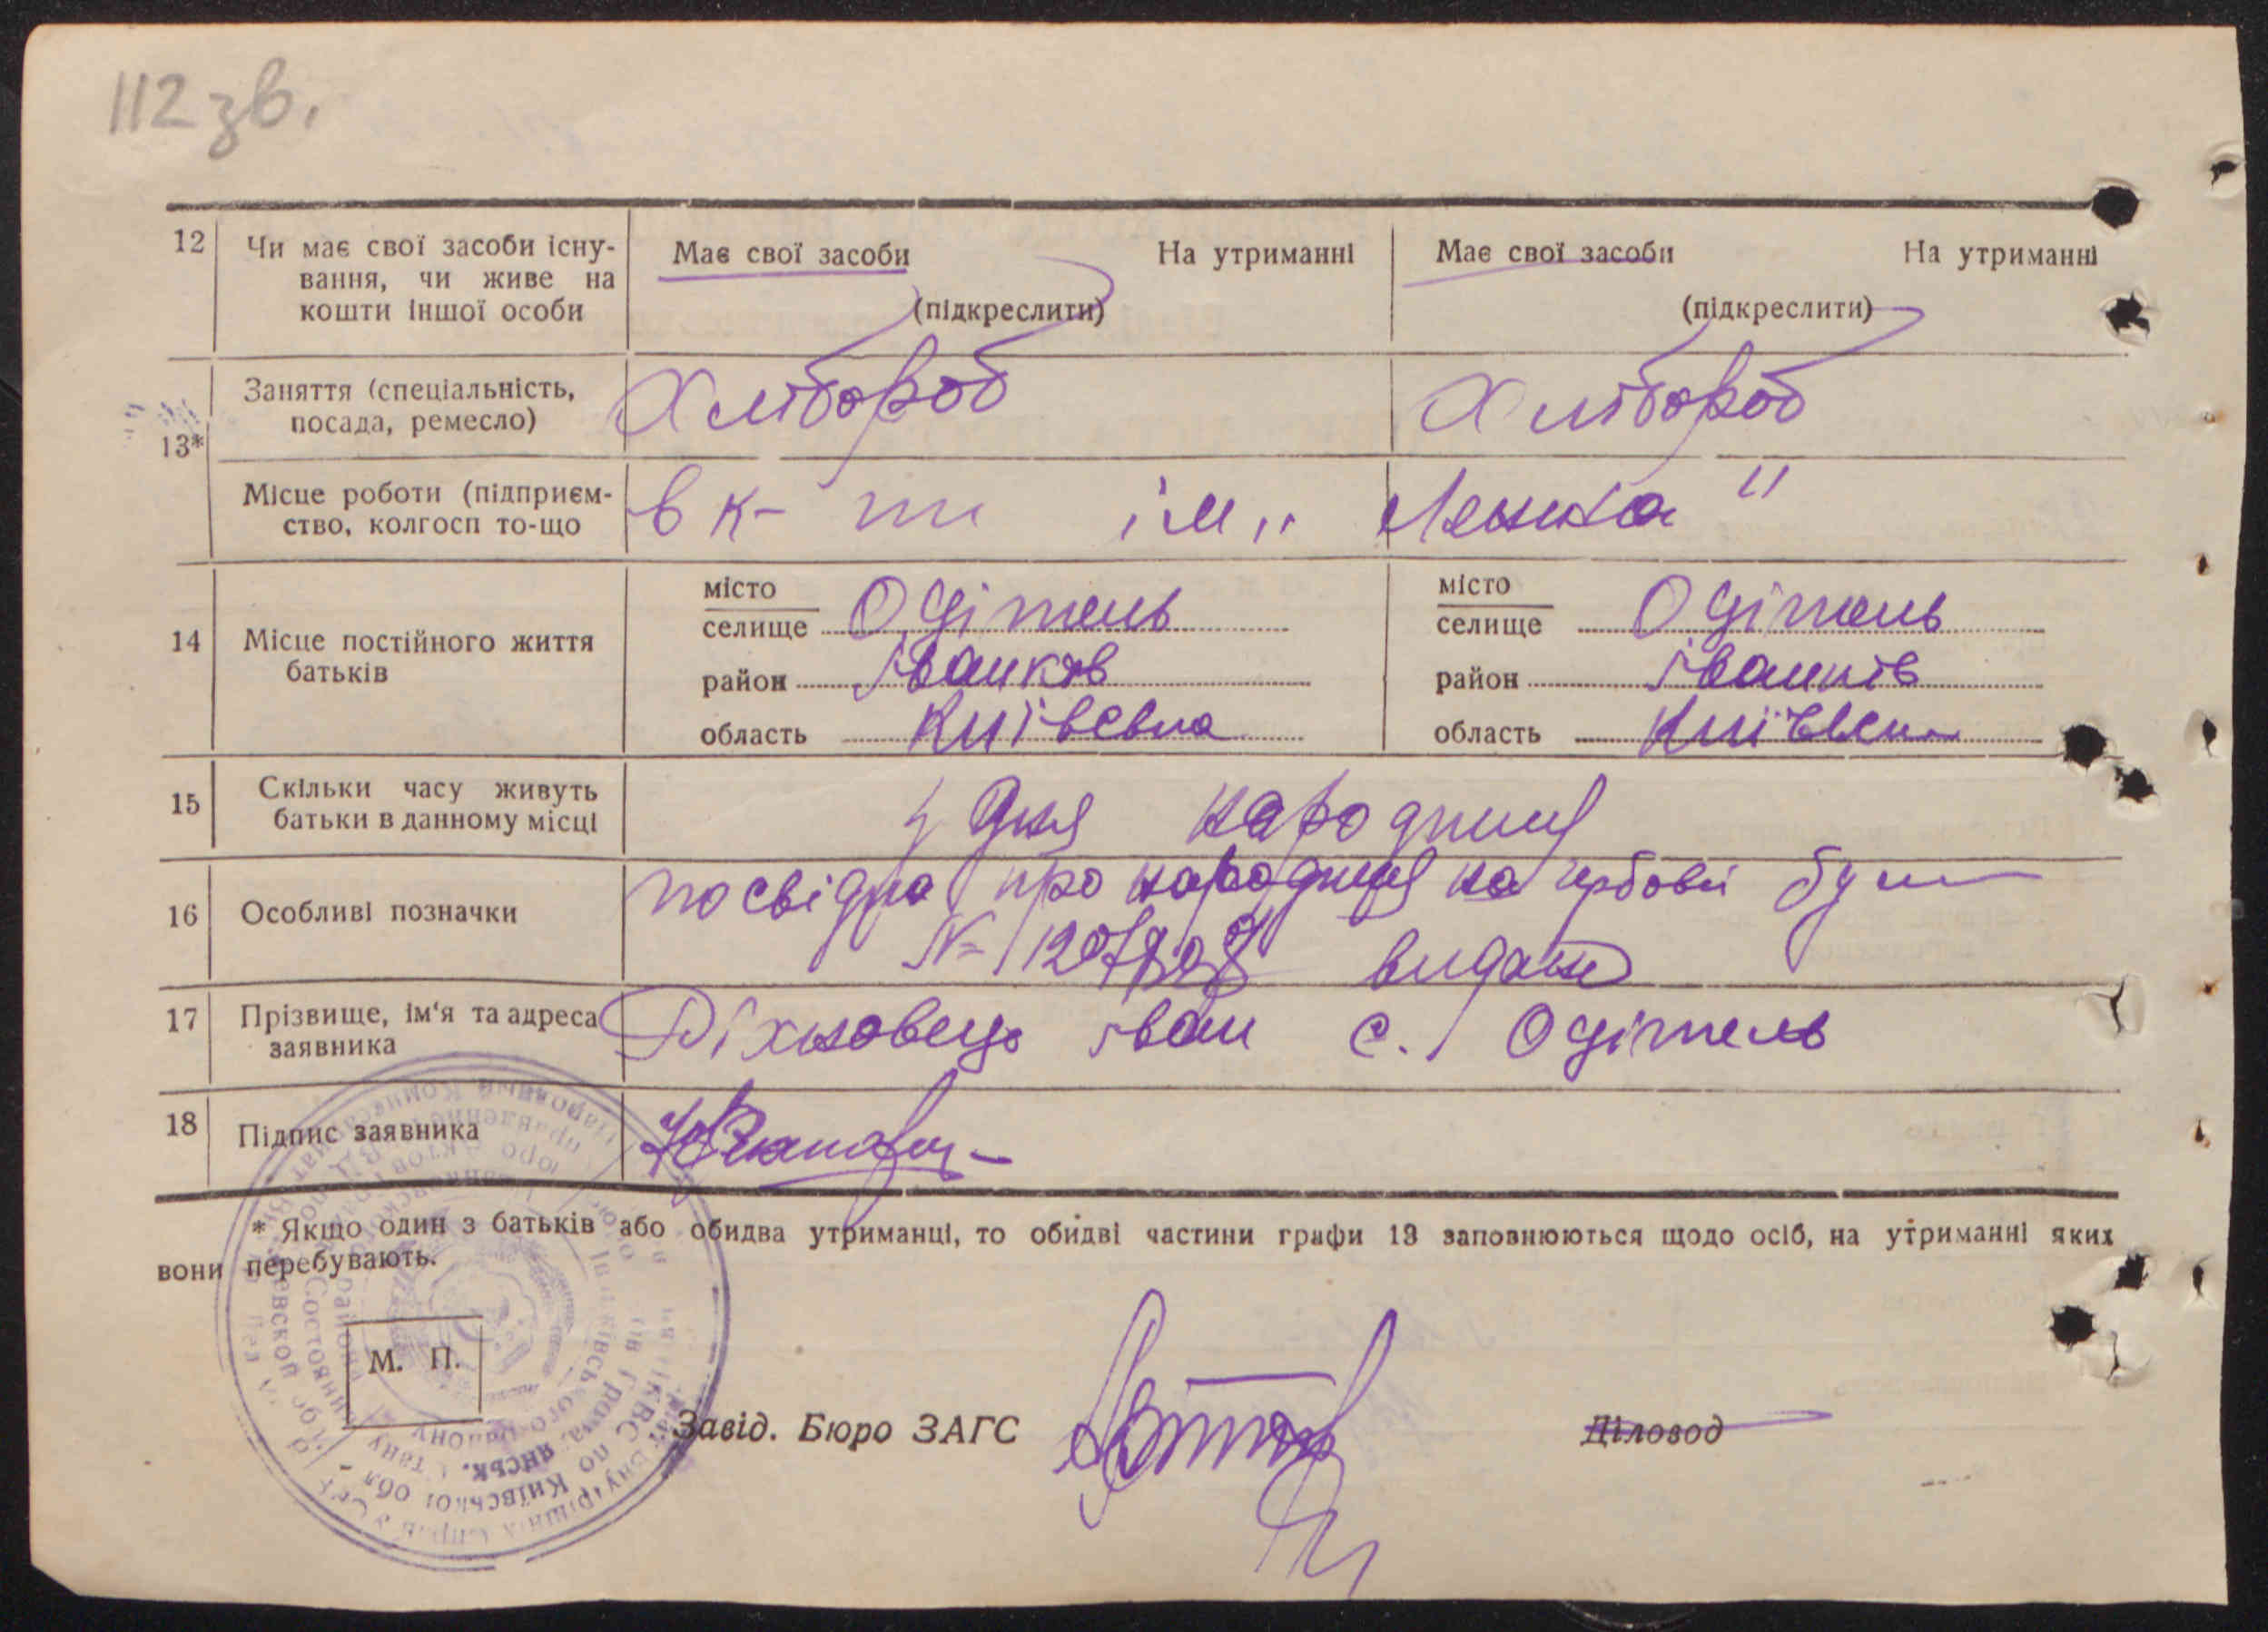 112 зв.
12 Чи має свої засоби існу-
вання, чи живе на
кошти іншої особи
Має свої засоби На утриманні
(підкреслити)
Має свої засоби На утриманні
(підкреслити)
13*
Заняття (спеціальність,
посада, ремесло)
Хлібороб
Хлібороб
Місце роботи (підприєм-
ство, колгосп то-що
в к-пі ім „
14 Місце постійного життя
батьків
місто
селище Одітель
район Іванків
область Київська
місто
селище Одітель
район Іванків
область Київська
15 Скільки часу живуть
батьки в данному місці
з дня народження
16 Особливі позначки
про народження на гербовій
№ видано
17 Прізвище, ім'я та адреса
заявника
Іван с. Одітель
18 Підпис заявника
* Якщо один з батьків або обидва утриманці, то обидві частини графи 13 заповнюються щодо осіб, на утриманні яких
вони перебувають.
М. П.
Завід. Бюро ЗАГС
Діловод